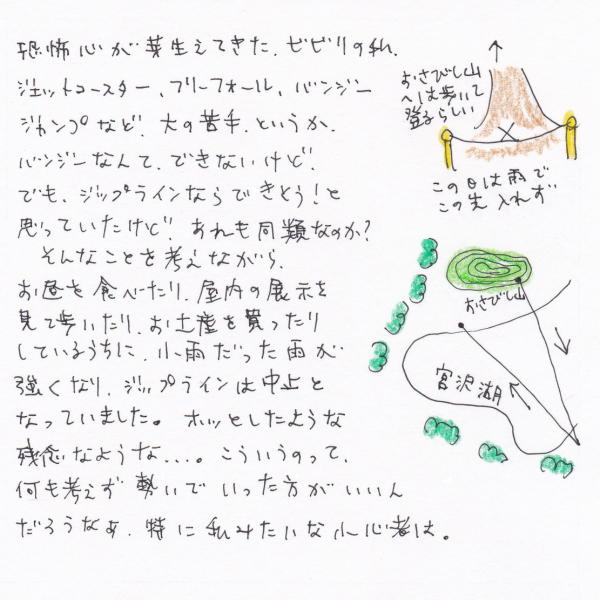 恐怖心が芽生えてきた、ビビリの私、
ジェットコースター、フリーフォール、バンジー
ジャンプなど、大の苦手、というか、
バンジーなんて、できないけど、
でも、ジップラインならできそう!と
思っていたけど、あれも同類なのか?
そんなことを考えながら、
お昼を食べたり、屋内の展示を
見て歩いたり、お土産を買ったり
しているうちに、小雨だった雨が
強くなり、ジップラインは中止と
なっていました。ホッとしたような
残念なような....。こういうのって、
何も考えず勢いでいった方がいいん
だろうなぁ、特に私みたいな小心者は。
おさびし山
へは歩いて
登るらしい
この日は雨で
この先入れず
おさびし山
宮沢湖